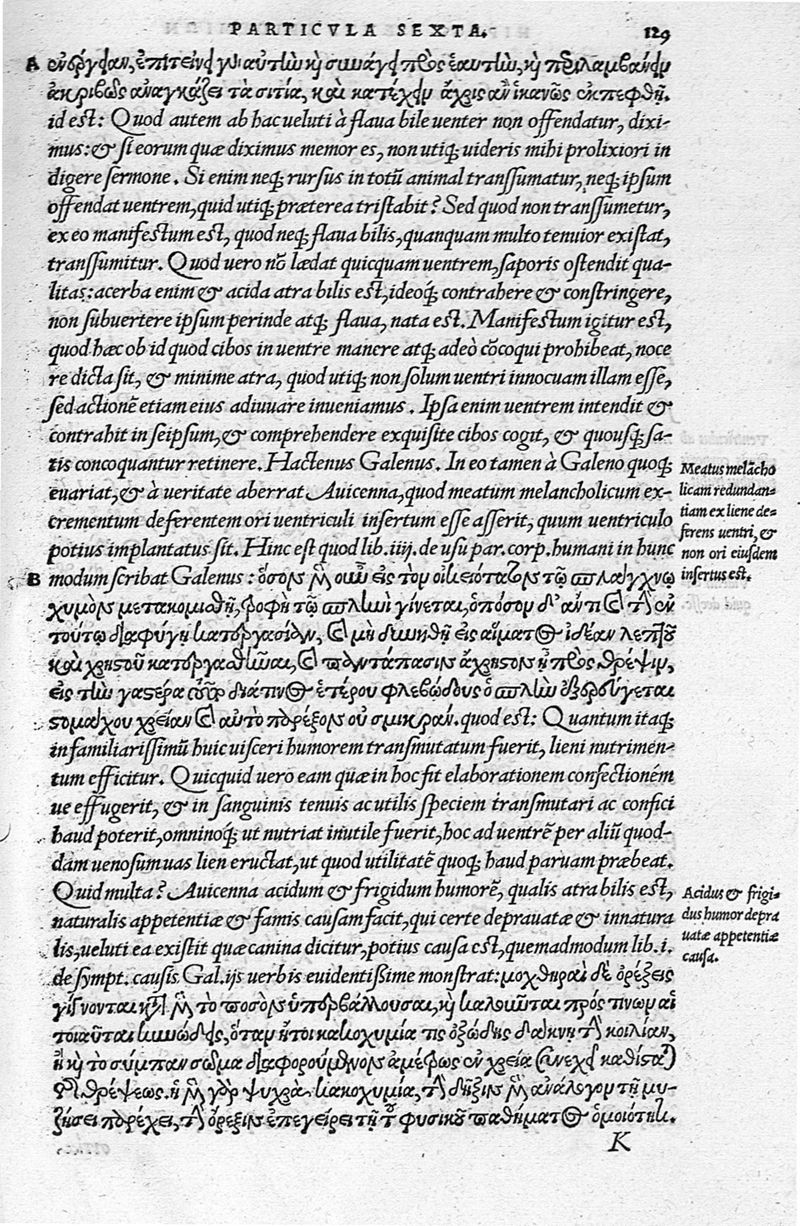 PARTICVLA SEXTA.
129
A
ἀκριβῶς ἀναγκάζει τὰ σιτία, καὶ κατέχειν ἄχρις ἂν ἱκανῶς ἐκπεφθῇ.
id est: Quod autem ab hac ueluti à flaua bile uenter non offendatur, dixi-
mus: & si eorum quæ diximus memor es, non utiq; uideris mihi prolixiori in
digere sermone. Si enim neq; rursus in totũ animal transsumatur, neq; ipsum
offendat uentrem, quid utiq; præterea tristabit? Sed quod non transsumetur,
ex eo manifestum est, quod neq; flaua bilis, quanquam multo tenuior existat,
transsumitur. Quod uero nõ lædat quicquam uentrem, saporis ostendit qua-
litas: acerba enim & acida atra bilis est, ideoq́; contrahere & constringere,
non subuertere ipsum perinde atq; flaua, nata est. Manifestum igitur est,
quod hæc ob id quod cibos in uentre manere atq; adeò cõcoqui prohibeat, noce
re dicta sit, & minime atra, quod utiq; non solum uentri innocuam illam esse,
sed actionẽ etiam eius adiuuare inueniamus. Ipsa enim uentrem intendit &
contrahit in seipsum, & comprehendere exquisite cibos cogit, & quousq; sa-
tis concoquantur retinere. Hactenus Galenus. In eo tamen à Galeno quoq;
euariat, & à ueritate aberrat Auicenna, quod meatum melancholicum ex-
crementum deferentem ori uentriculi insertum esse asserit, quum uentriculo
potius implantatus sit. Hinc est quod lib. iiij. de usu par. corp. humani in hunc
Meatus melãcho
licam redundan-
tiam ex liene de-
ferens uentri, &
non ori eiusdem
insertus est.
B
modum scribat Galenus: ὅσοις μὲν οὖν εἰς τὸν οἰκειότατον τῷ σπλάγχνῳ
χυμὸς μετακομισθῇ, τροφὴ τῷ σπλωὶ γίνεται, ὁπόσον δ' ἂν
τούτῳ διαφύγῃ κατεργασίαν, μὴ δυνηθῇ εἰς αἵματος ἰδέαν λεπτοῦ
καὶ χρηστοῦ κατεργασθῶαι, παντάπασιν ἄχρηστον ᾖ πρὸς θρέψιν,
εἰς τὼ γαστέρα διά τινος ἑτέρου φλεβώδους ὁ σπλὼ ἐξερεύγεται
στομάχου χρείαν αὐτὸ παρέξον οὐ σμικράν. quod est: Quantum itaq;
in familiarissimũ huic uisceri humorem transmutatum fuerit, lieni nutrimen-
tum efficitur. Quicquid uero eam quæ in hoc fit elaborationem confectioném
ue effugerit, & in sanguinis tenuis ac utilis speciem transmutari ac confici
haud poterit, omninoq́; ut nutriat inutile fuerit, hoc ad uentrẽ per aliũ quod-
dam uenosum uas lien eructat, ut quod utilitatẽ quoq; haud paruam præbeat.
Quid multa? Auicenna acidum & frigidum humorẽ, qualis atra bilis est,
naturalis appetentiæ & famis causam facit, qui certe deprauatæ & innatura
lis, ueluti ea existit quæ canina dicitur, potius causa est, quemadmodum lib. i.
de sympt. causis Gal. ijs uerbis euidentißime monstrat: μοχθηραὶ δὲ ὀρέξεις
Acidus & frigi-
dus humor depra
uatæ appetentiæ
causa.
γίγνονται κατὰ μὲν τὸ ποσὸν ὑπερβάλλουσαι, καὶ καλοῦνται πρός τινων αἱ
τοιαῦται κυνώδεις, ὅταν ἤτοι κακοχυμία τις ὀξώδης δάκνῃ τὴν κοιλίαν,
ἢ καὶ τὸ σύμπαν σῶμα διαφορούμενον ἀμέτρως ἐν χρείᾳ
θρέψεως. ἡ μὲν γὰρ ψυχρὰ κακοχυμία, τὴν δῆξιν μὲν ἀνάλογον τῇ μυ-
ζήσει παρέχει, τὴν ὄρεξιν ἐπεγείρει τῇ τοῦ φυσικοῦ παθήματος ὁμοιότητι.
K